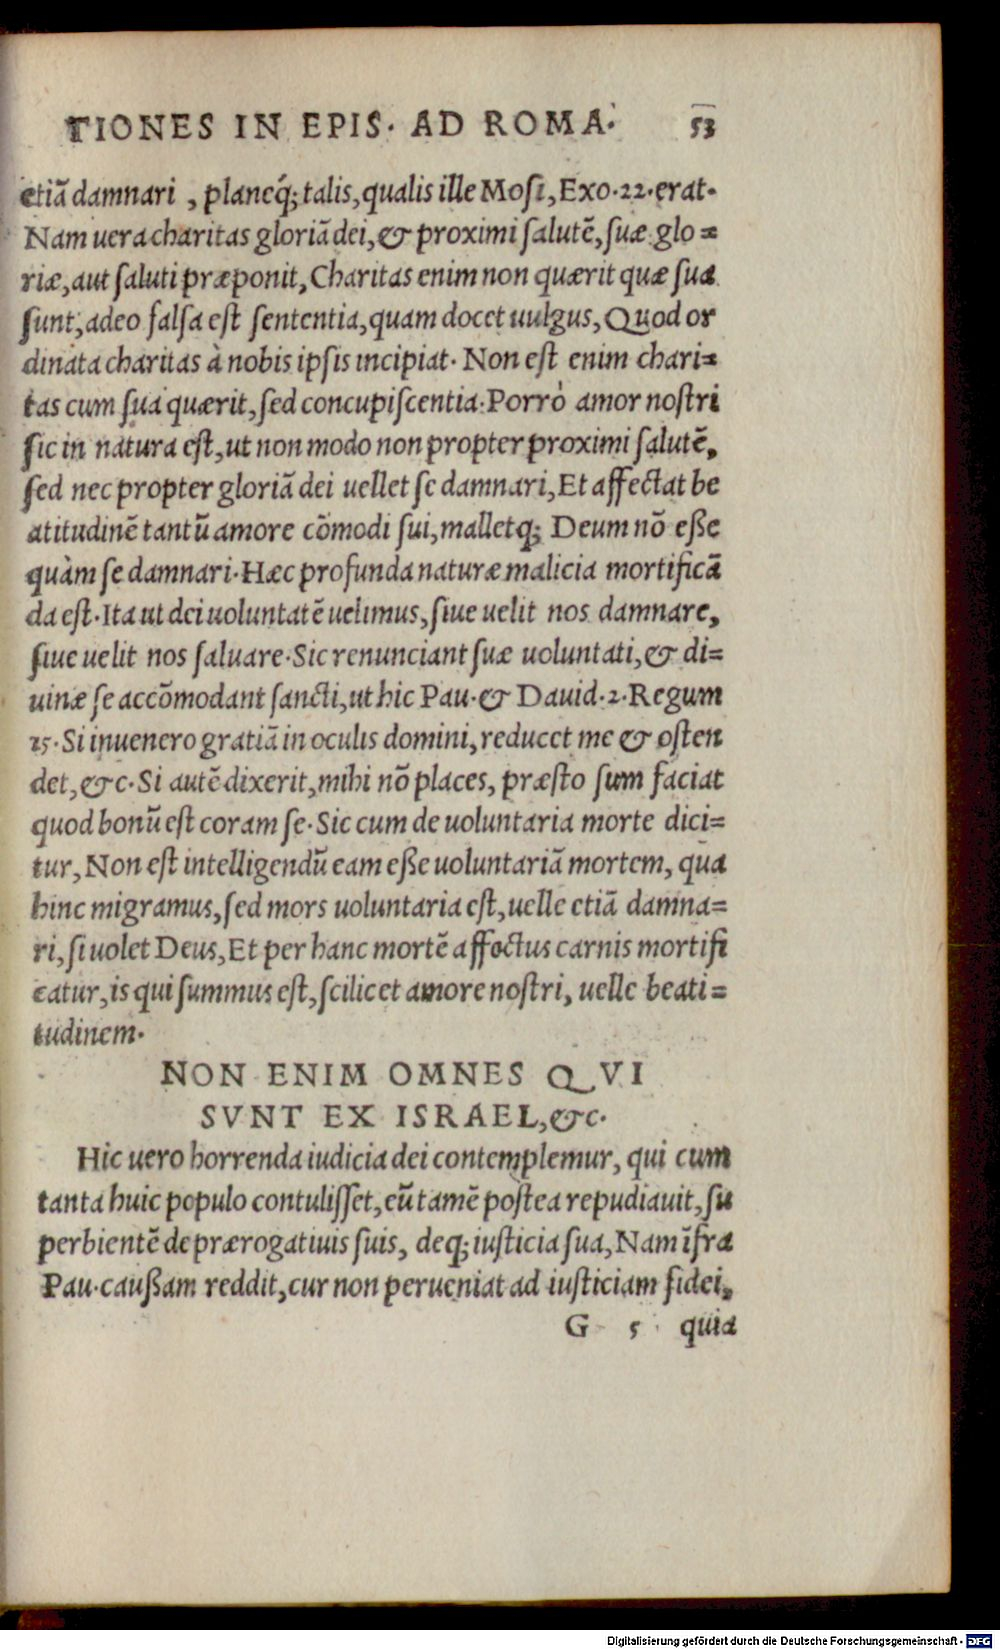 TIONES IN EPIS. AD ROMA. 53
etiã damnari, planeq́; talis, qualis ille Mosi, Exo. 22. erat.
Nam uera charitas gloriã dei, & proximi salutẽ, suæ glo=
riæ, aut saluti præponit, Charitas enim non quærit quæ sua
sunt, adeo falsa est sententia, quam docet uulgus, Quod or
dinata charitas à nobis ipsis incipiat. Non est enim chari=
tas cum sua quærit, sed concupiscentia. Porrò amor nostri
sic in natura est, ut non modo non propter proximi salutẽ,
sed nec propter gloriã dei uellet se damnari, Et affectat be
atitudinẽ tantũ amore cõmodi sui, malletq; Deum nõ eße
quàm se damnari. Hæc profunda naturæ malicia mortificã
da est. Ita ut dei uoluntatẽ uelimus, siue uelit nos damnare,
siue uelit nos saluare. Sic renunciant suæ uoluntati, & di=
uinæ se accõmodant sancti, ut hic Pau. & Dauid. 2. Regum
15. Si inuenero gratiã in oculis domini, reducet me & osten
det, &c. Si autẽ dixerit, mihi nõ places, præsto sum faciat
quod bonũ est coram se. Sic cum de uoluntaria morte dici=
tur, Non est intelligendũ eam eße uoluntariã mortem, qua
hinc migramus, sed mors uoluntaria est, uelle etiã damna=
ri, si uolet Deus, Et per hanc mortẽ affectus carnis mortifi
catur, is qui summus est, scilicet amore nostri, uelle beati=
tudinem.
NON ENIM OMNES QVI
SVNT EX ISRAEL, &c.
Hic uero horrenda iudicia dei contemplemur, qui cum
tanta huic populo contulisset, eũ tamẽ postea repudiauit, su
perbientẽ de prærogatiuis suis, deq; iusticia sua, Nam ĩfra
Pau. caußam reddit, cur non perueniat ad iusticiam fidei,
G 5 quia
Digitalisierung gefördert durch die Deutsche Forschungsgemeinschaft - DFG